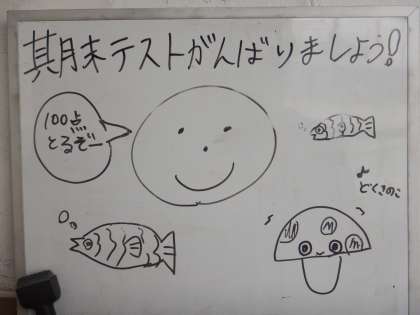 其月末テストがんばりましょう!
100点
とるぞー
♪
どくきのこ